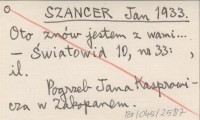 SZANCER Jan 1933.
Oto znów jestem z wami...
— Światowid 10, nr 33: ,
il.
Pogrzeb Jana Kasprowi-
cza w Zakopanem.